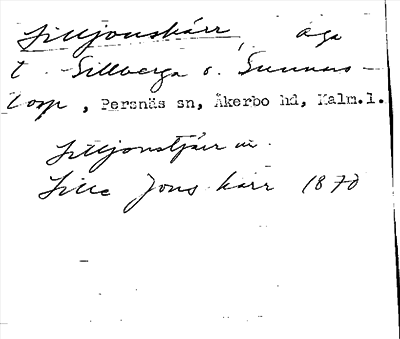 Lilljonskärr, äga
t. Sillberga o. Gunnars-
torp, Persnäs sn, Åkerbo hd, Kalm.l.
Lilljonstjärr
Lille Jons kärr 1870